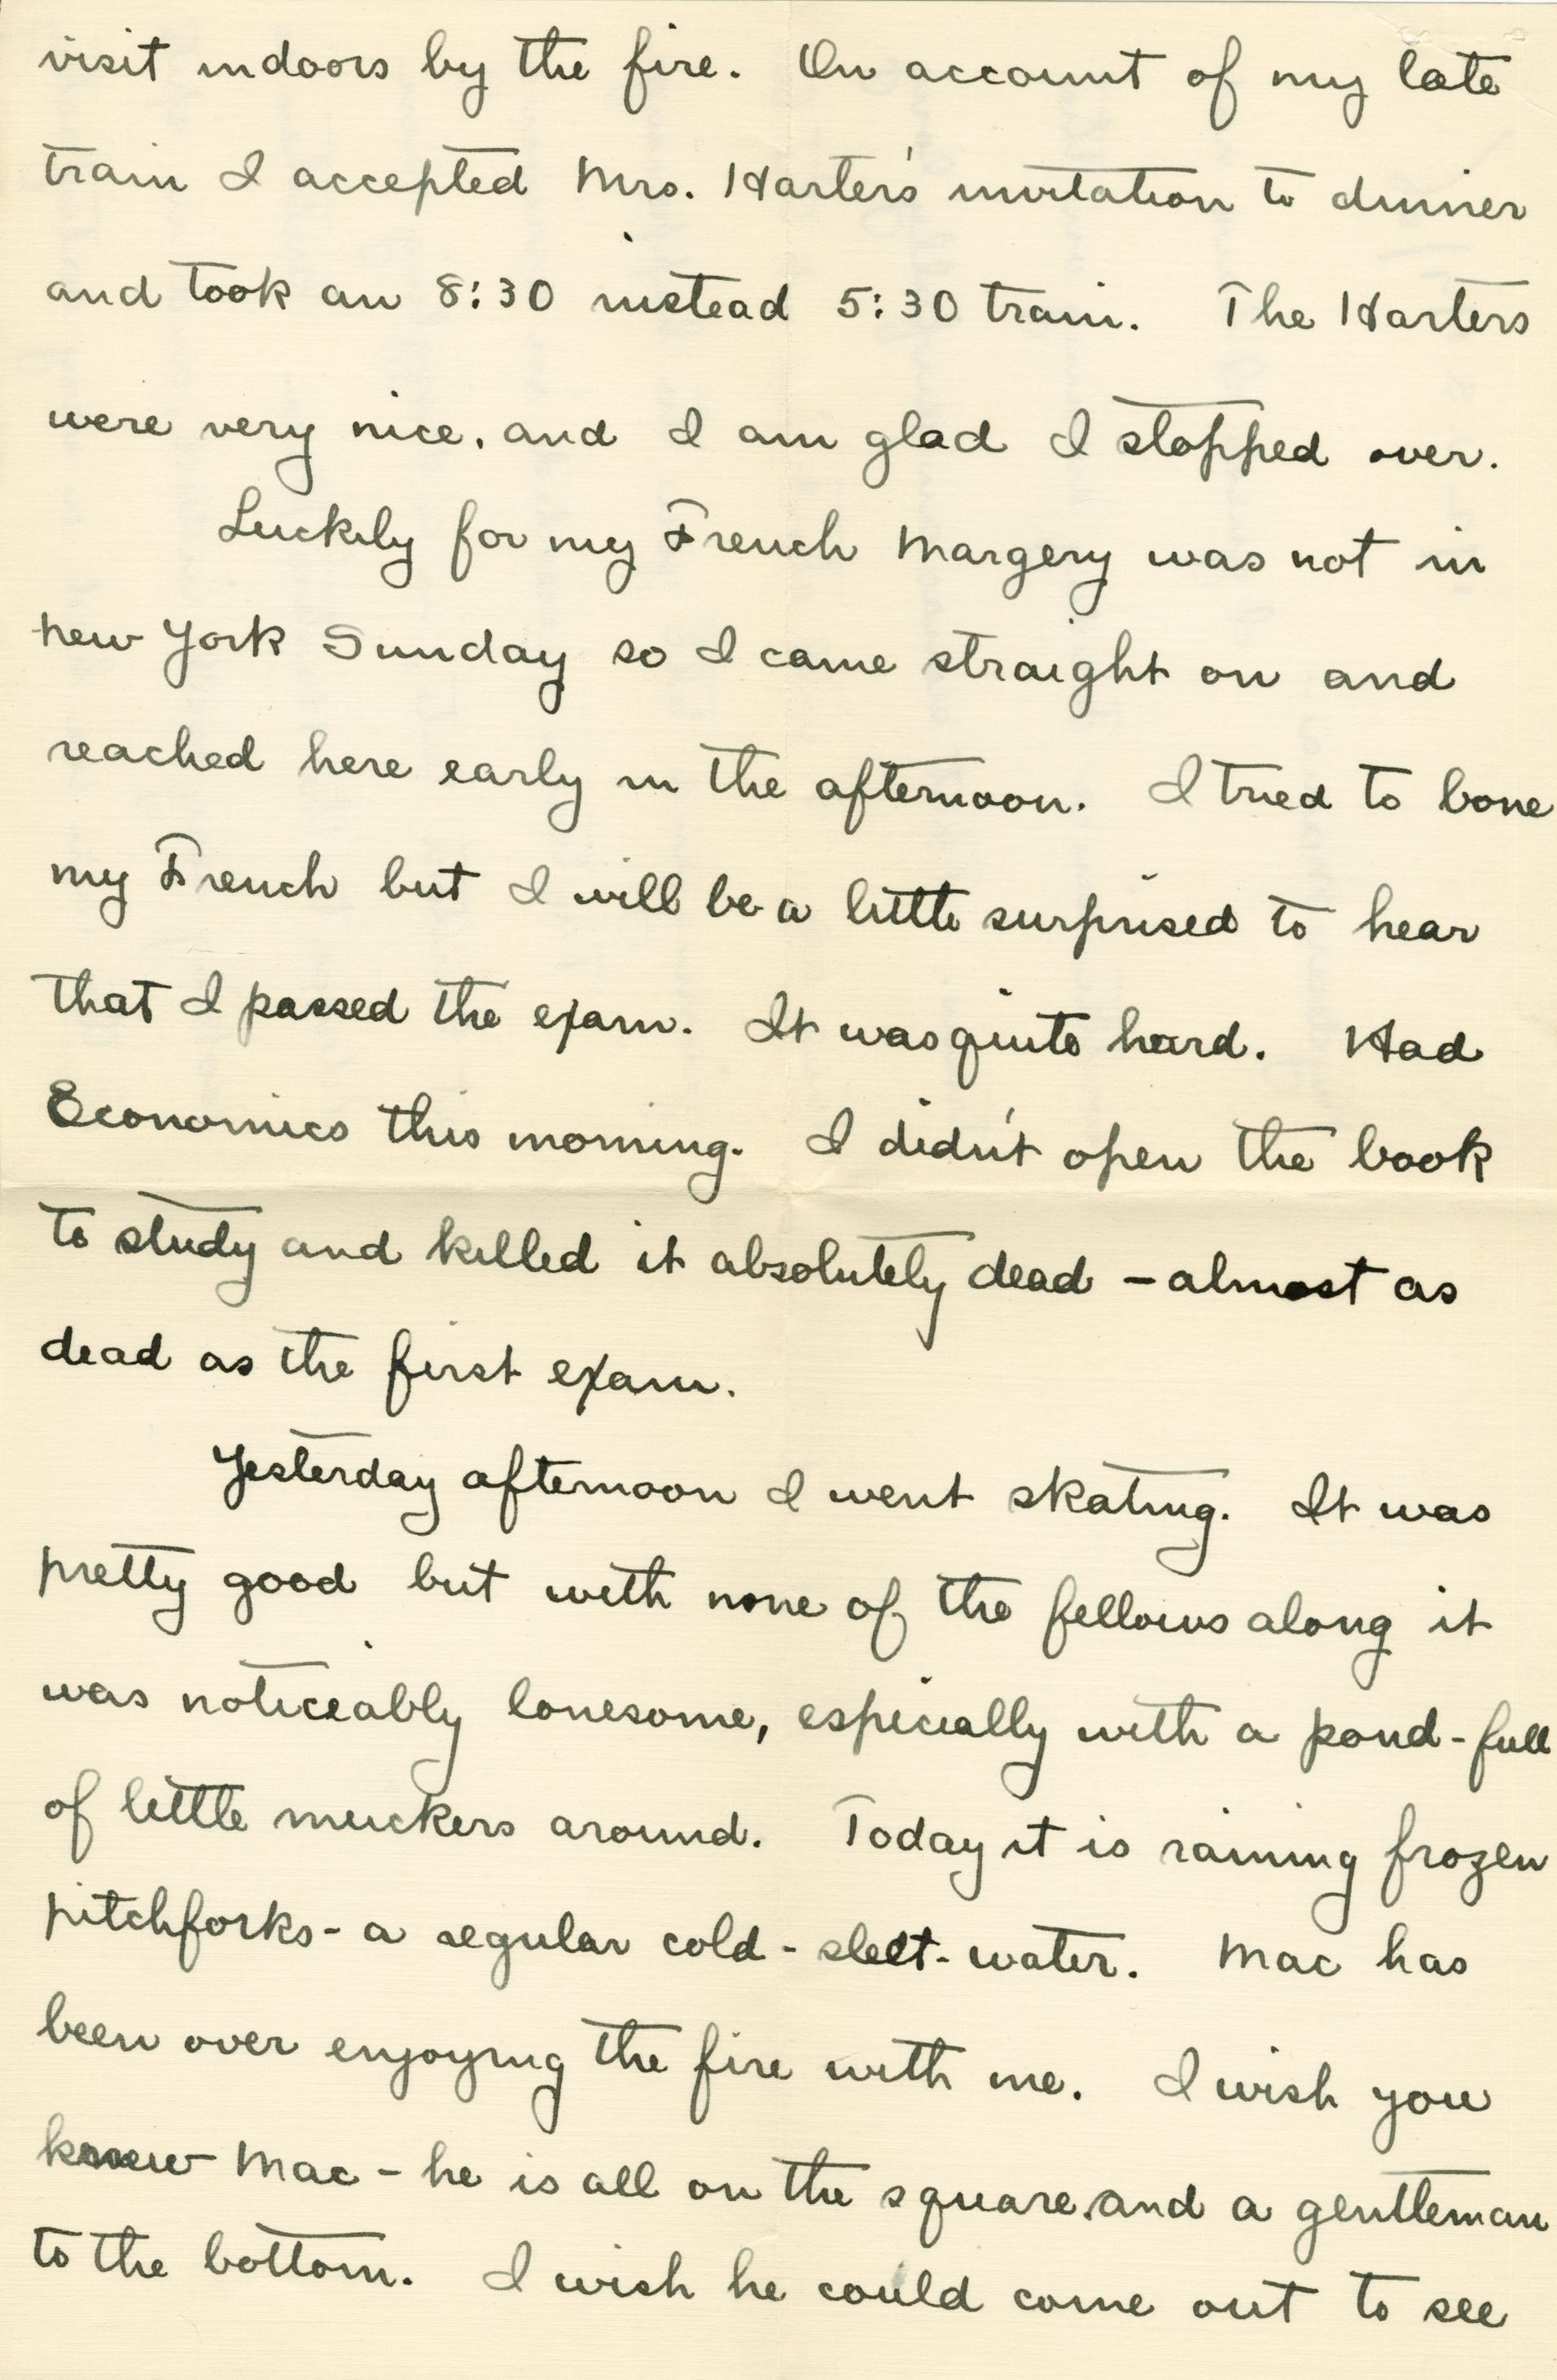 visit indoors by the fire. On account of my late
train I accepted Mrs. Harter's invitation to dinner
and took an 8:30 instead 5:30 train. The Harters
were very nice, and I am glad I stopped over.
Luckily for my French Margery was not in
New York Sunday so I came straight on and
reached here early in the afternoon. I tried to bone
my French but I will be a little surprised to hear
that I passed the exam. It was quite hard. Had
Economics this morning. I didn't open the book
to study and killed it absolutely dead - almost as
dead as the first exam.
Yesterday afternoon I went skating. It was
pretty good but with none of the fellows along it
was noticeably lonesome, especially with a pond-full
of little muckers around. Today it is raining frozen
pitchforks - a regular cold-sleet-water. Mac has
been over enjoying the fire with me. I wish you
knew Mac - he is all on the square, and a gentleman
to the bottom. I wish he could come out to see